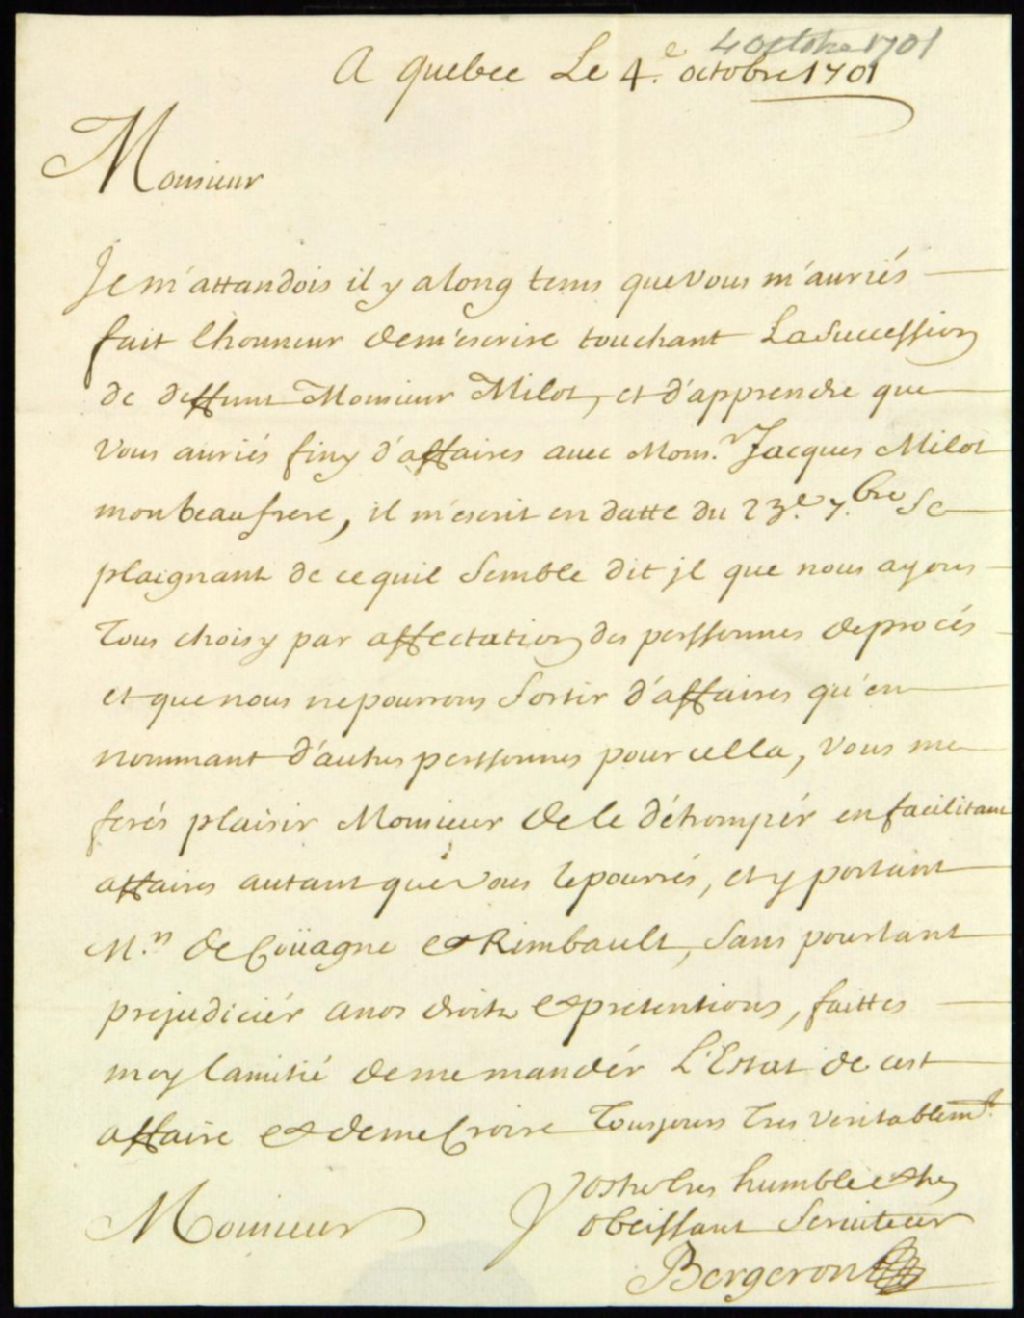 4 octobre 1701
A quebec Le 4.e octobre 1701
Monsieur
Je m'attandois il y a long tems que vous m'auriés
fait lhonneur de m'escrire touchant La Succession
de deffunt Monsieur Milot, et d'apprendre que
vous auriés finy d'affaires avec Mons.r Jacques Milot
mon beaufrere, il m'escrit en datte du 23.e 7.bre Se
plaignant de ce quil Semble dit jl que nous ayons
Tous choisy par affectation des perssonnes de procés
et que nous ne pourrons Sortir d'affaires qu'en
nommant d'autres perssonnes pour cella, vous me
ferés plaisir Monsieur de le détrompér en facilitant
affaires autant que vous le pourrés, et y portant
M.rs de Coüagne et Rimbault, Sans pourtant
prejudiciér a nos droits et pretentions, faittes
moy lamitié de me mandér L'Estat de cest
affaire et de me Croire Tousjours Tres veritablem.t
Vostre tres humble et tres
Monsieur obeissant Serviteur
Bergeron